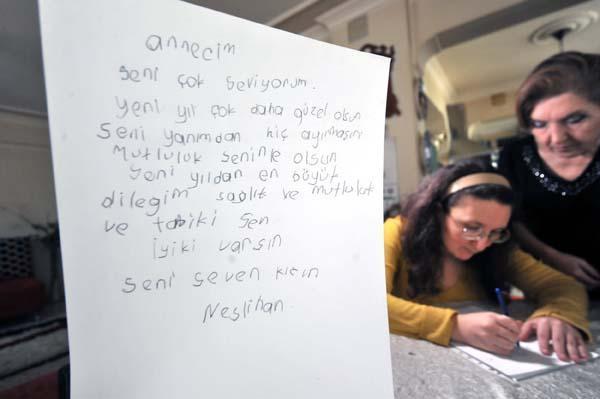 annecim
seni çok seviyorum.
yeni yıl çok daha güzel olsun
seni yanımdan hiç ayırmasın
mutluluk seninle olsun
yeni yıldan en büyük
dileğim sağlık ve mutluluk
ve tabiki sen
iyiki varsın
seni seven kızın
Neslihan.